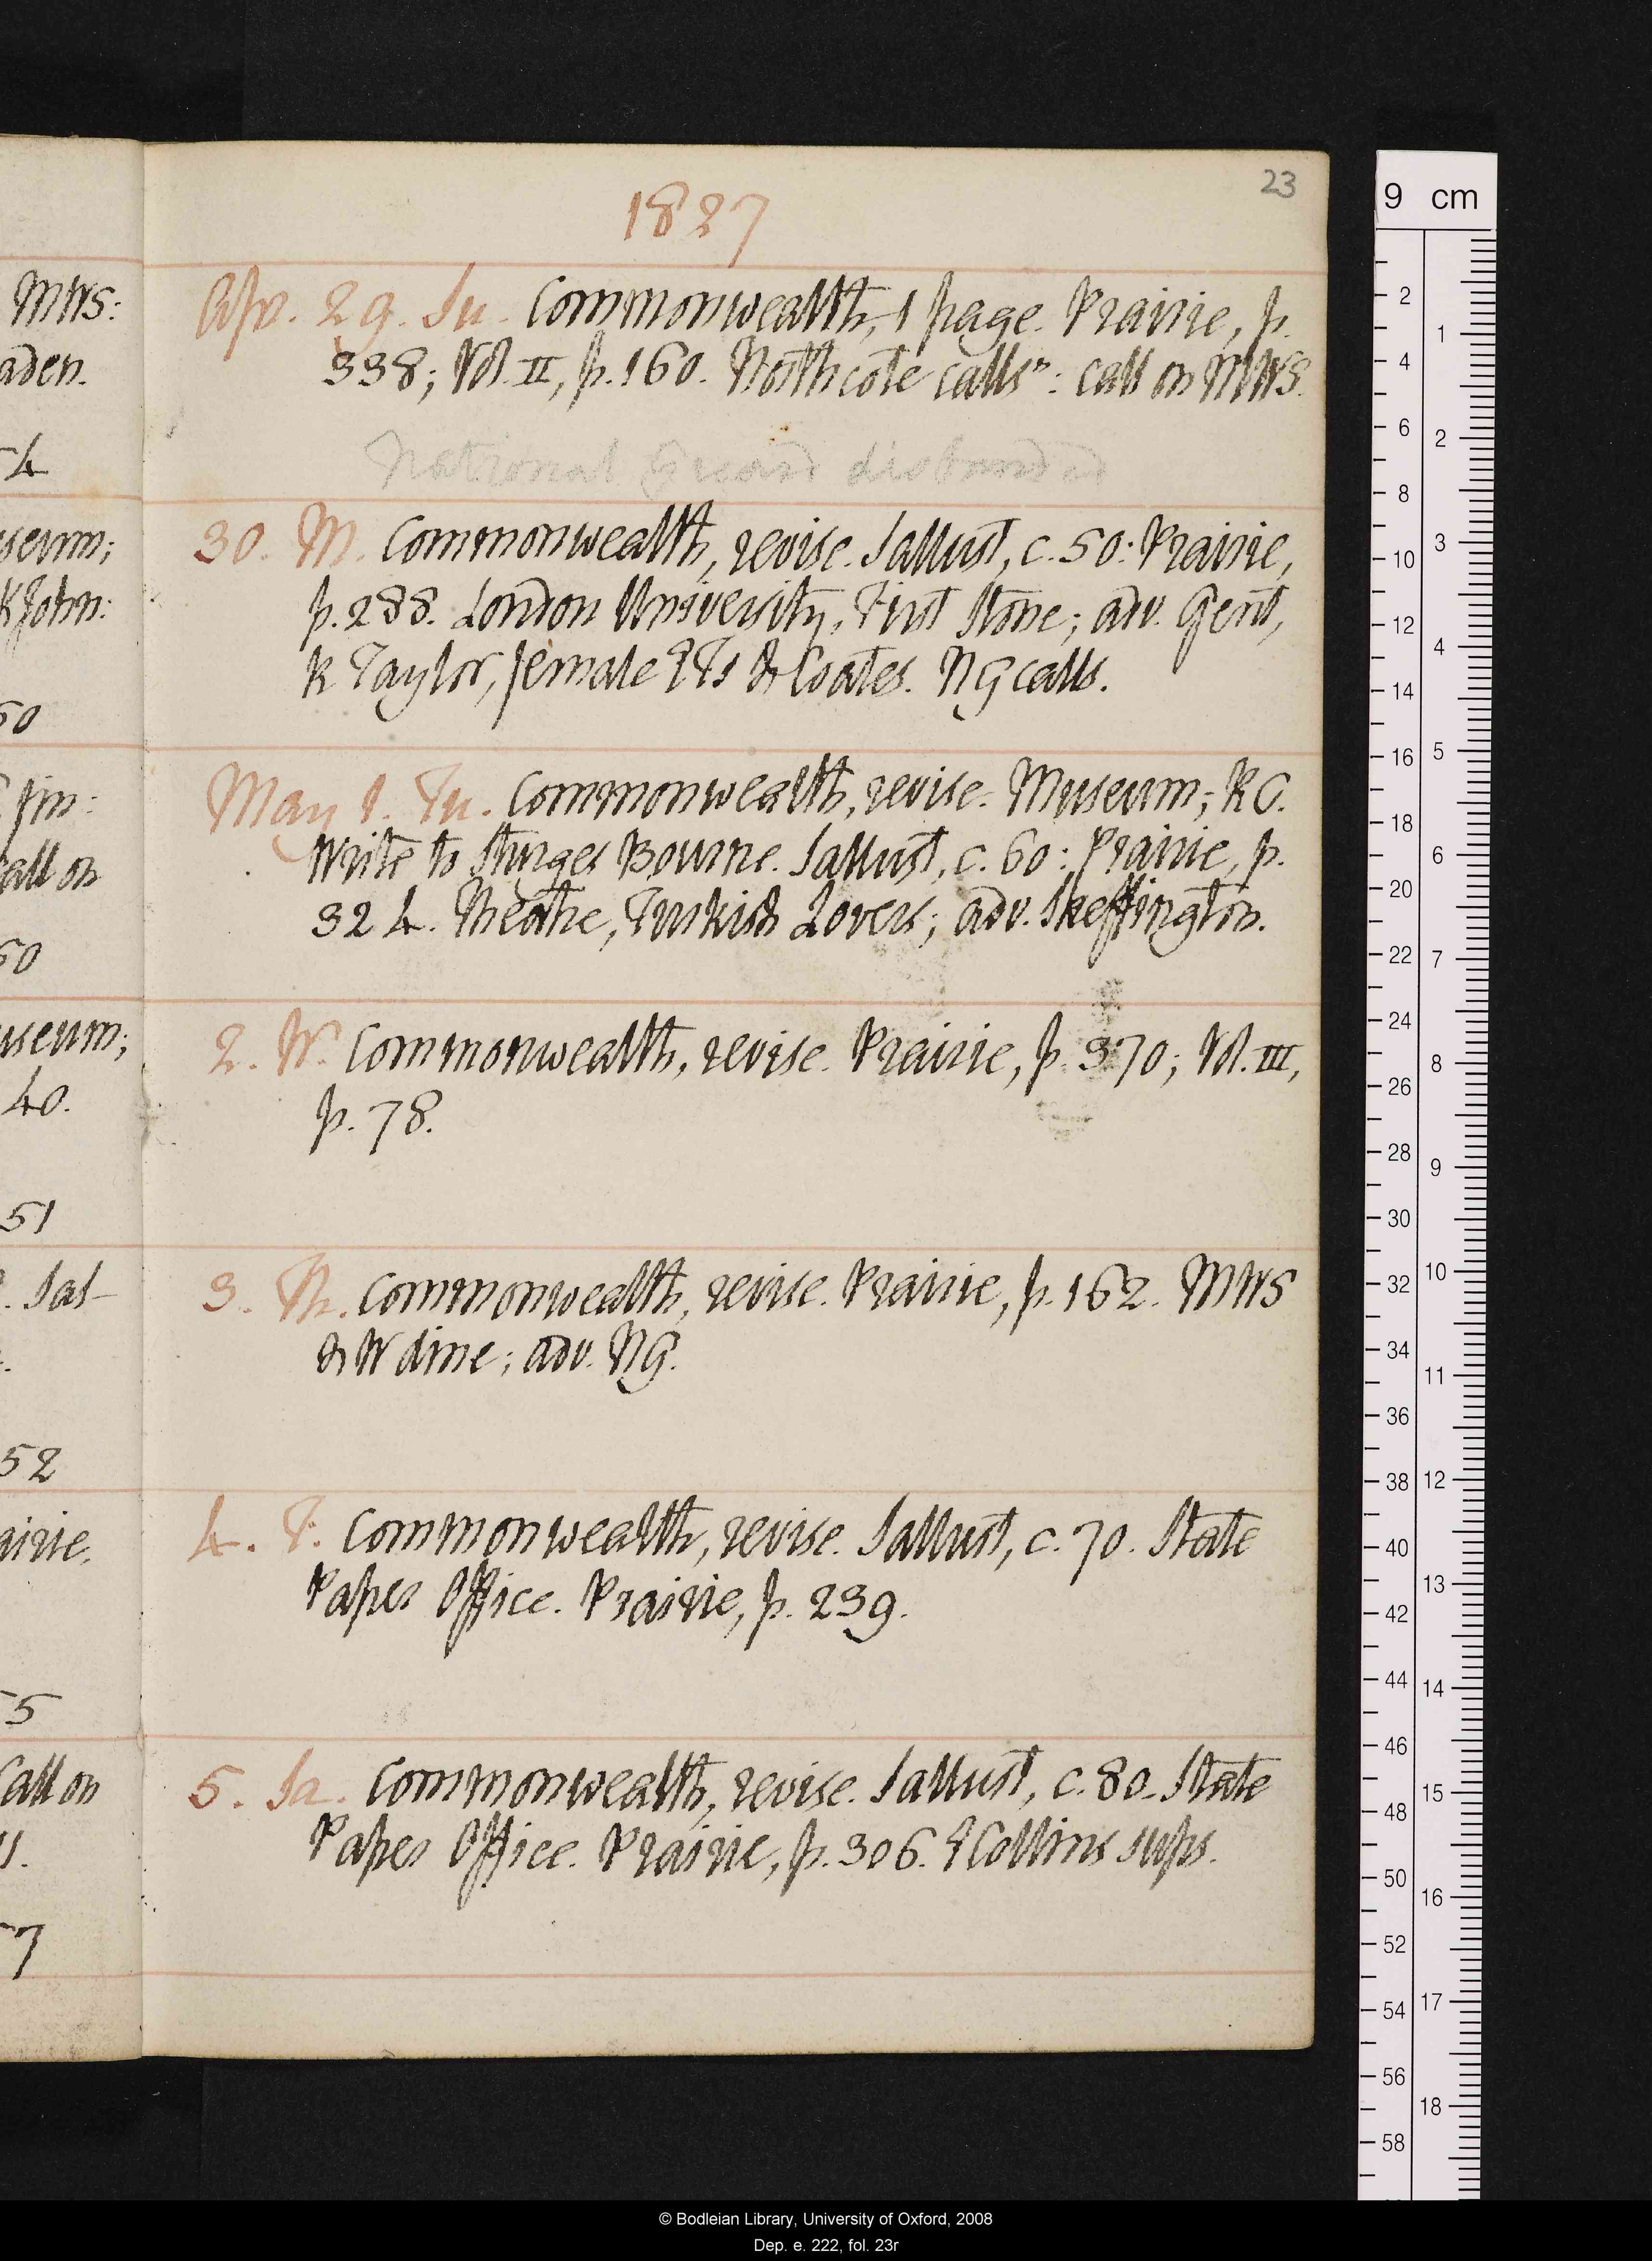 23
1827
MWS:
aden.
54
Apr. 29. Su. Commonwealth, 1 page. Prairie, p.
338; Vol. II, p. 160. Northcote calls n: call on MWS.
National Guard disbanded
seum;
K John:
50
30. M. Commonwealth, revise. Sallust, c. 50: Prairie,
p. 288. London University, First Stone; adv. Gent,
R Taylor, female & Coates. NG calls.
fin:
call on
50
May 1. Tu. Commonwealth, revise. Museum; RC.
Write to Sturges Bourne. Sallust, c. 60: Prairie, p.
324. Theatre, Turkish Lovers; adv. Skeffington.
useum;
40.
51
2. W. Commonwealth, revise. Prairie, p. 370; Vol. III,
p. 78.
. Sal-
52
3. Th. Commonwealth, revise. Prairie, p. 162. MWS
& W dine; adv. NG.
airie.
55
4. F. Commonwealth, revise. Sallust, c. 70. State
Paper Office. Prairie, p. 239.
Call on
57
5. Sa. Commonwealth, revise. Sallust, c. 80. State
Paper Office. Prairie, p. 306. Collins sups.
9 cm
2
4
6
8
10
12
14
16
18
20
22
24
26
28
30
32
34
36
38
40
42
44
46
48
50
52
54
56
58
1
2
3
4
5
6
7
8
9
10
11
12
13
14
15
16
17
18
© Bodleian Library, University of Oxford, 2008
Dep. e. 222, fol. 23r